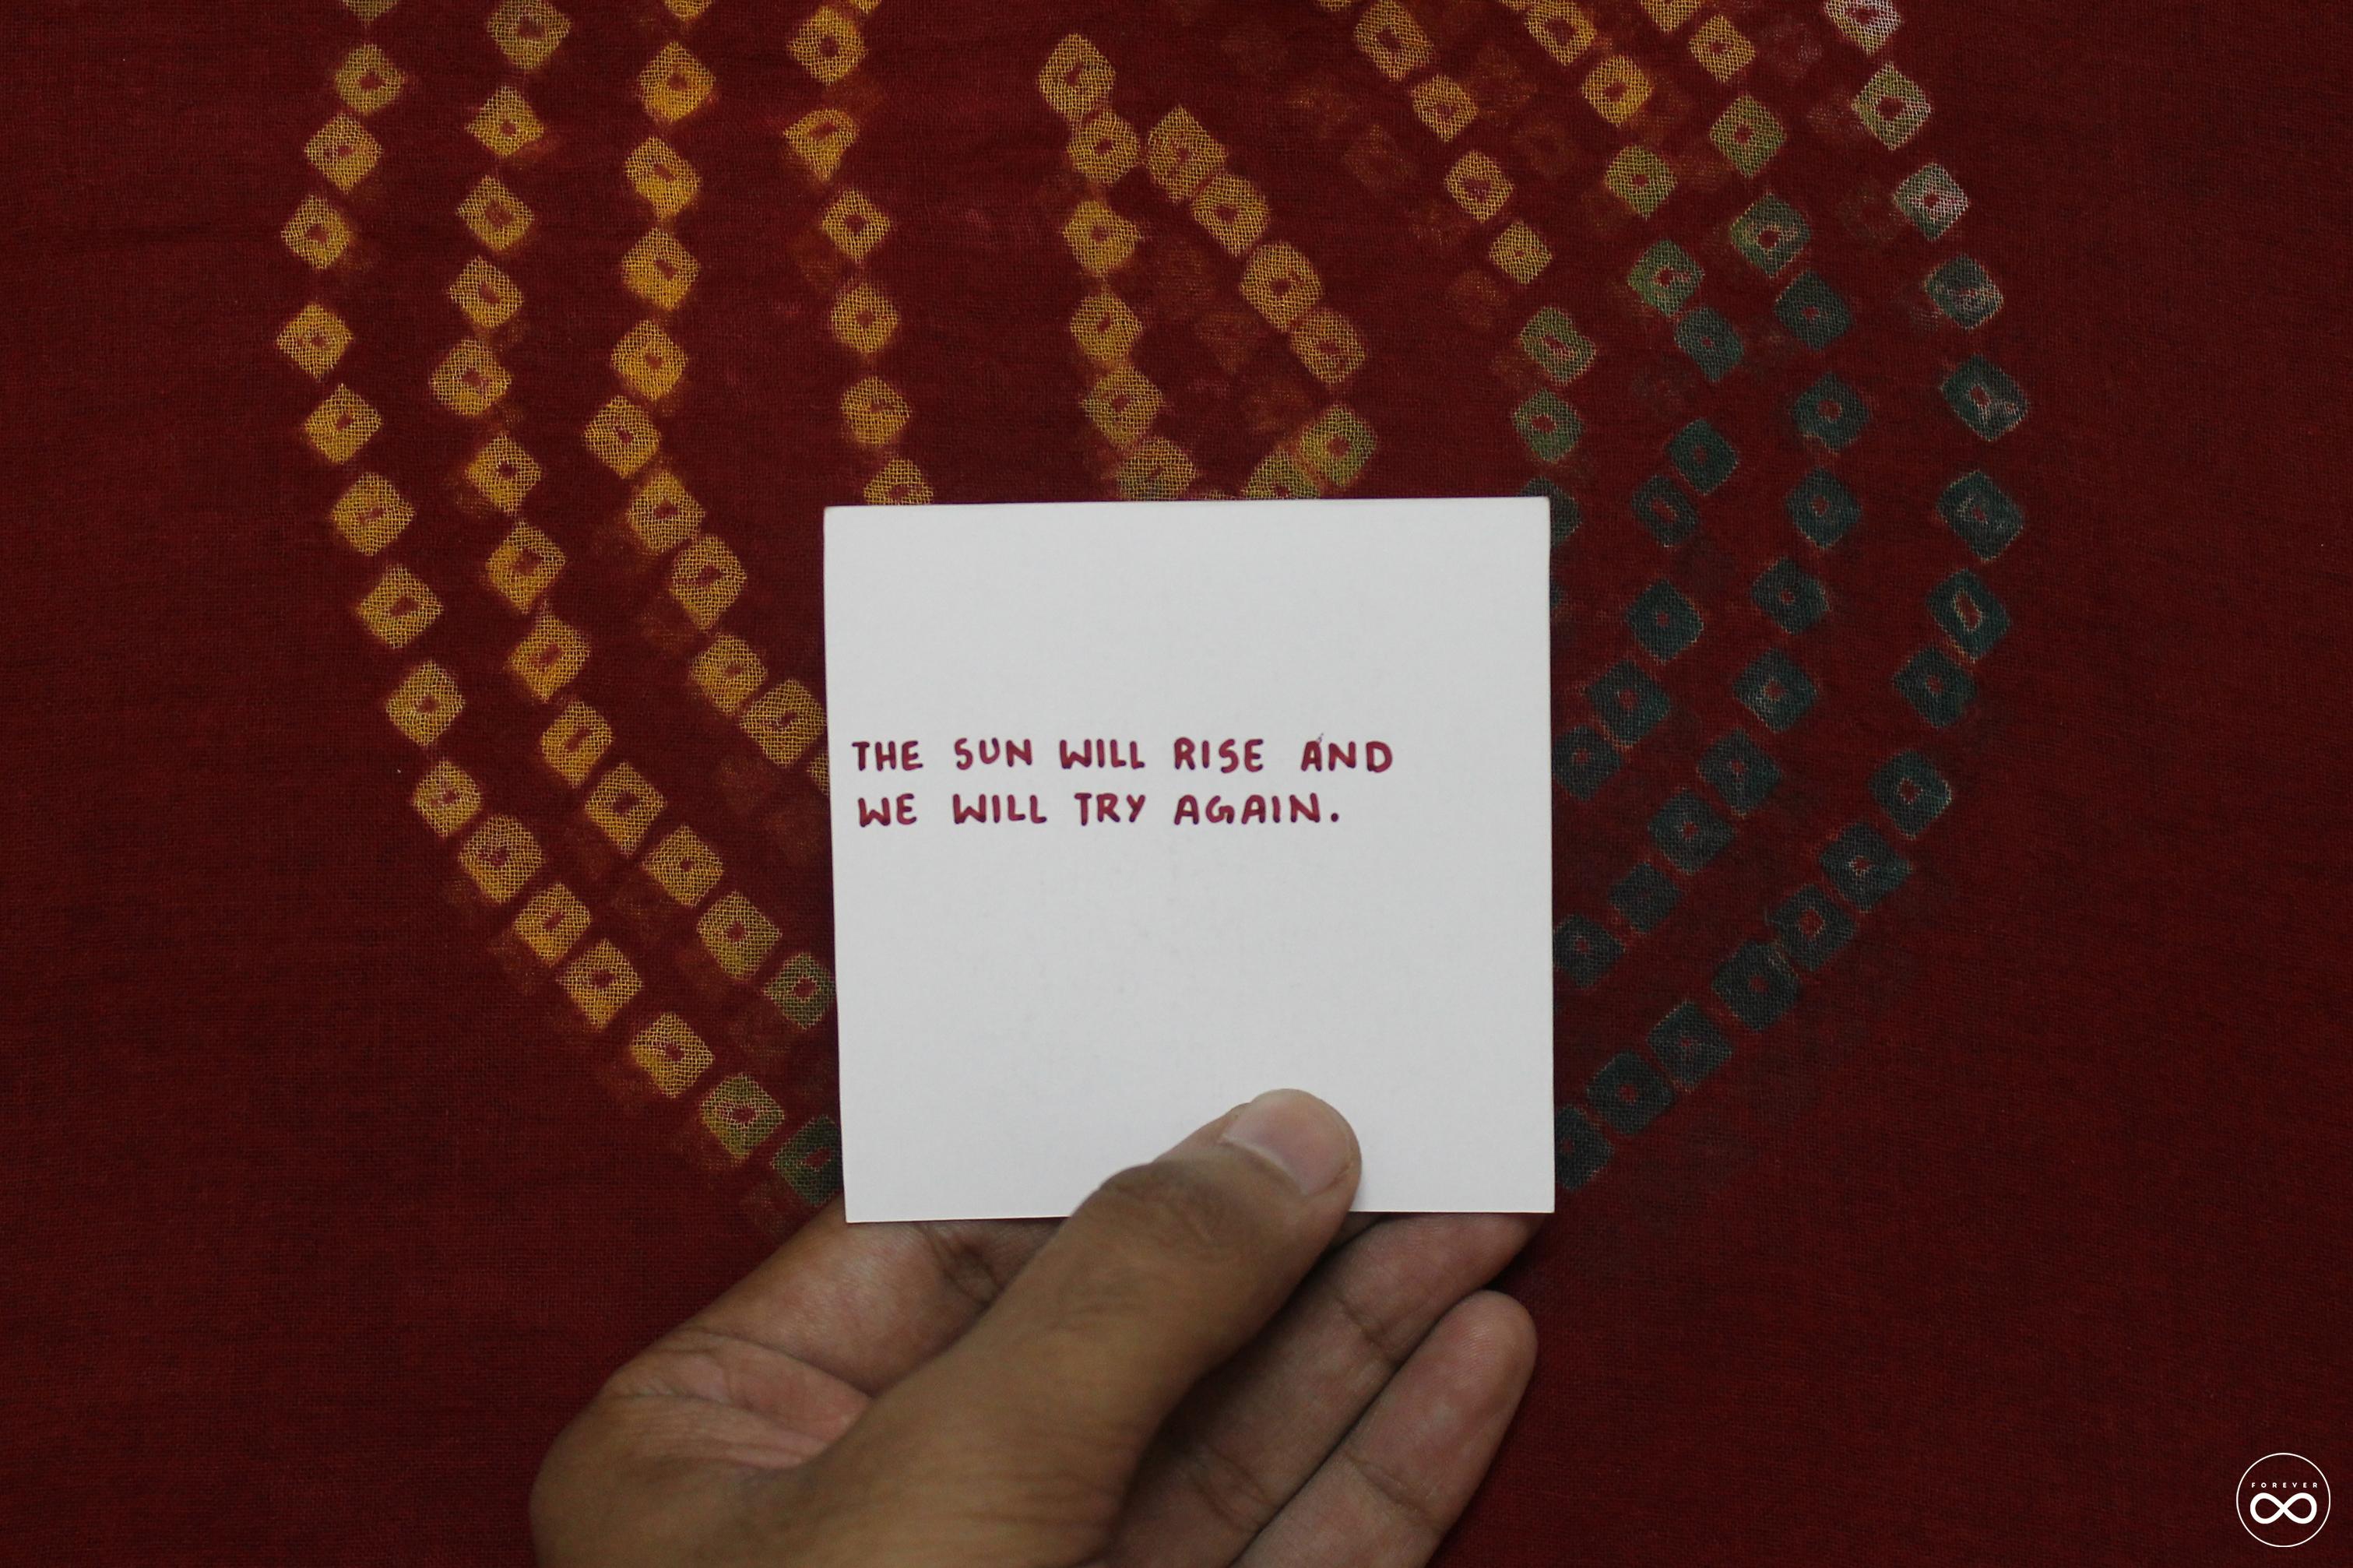 THE SUN WILL RISE AND
WE WILL TRY AGAIN.
FOREVER